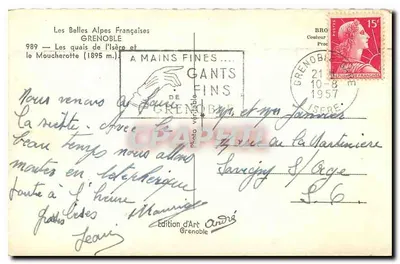 Les Belles Alpes Françaises
GRENOBLE
989 - Les quais de l'Isère et
le Moucherotte (1895 m.)
A MAINS FINES....
GANTS
FINS
DE
GRENOBLE
15F
GRENOBLE
21
10-8
1957
ISERE
Nous venons de faire
la sieste. Avec le
beau temps nous allons
monter en téléphérique
toute à l'heure
Bises
Jean
Maurice
Photo véritable
Edition d'Art André
Grenoble
Mr et Mme Janvier
rue de la Martinière
Savigny S/Orge
S. O.